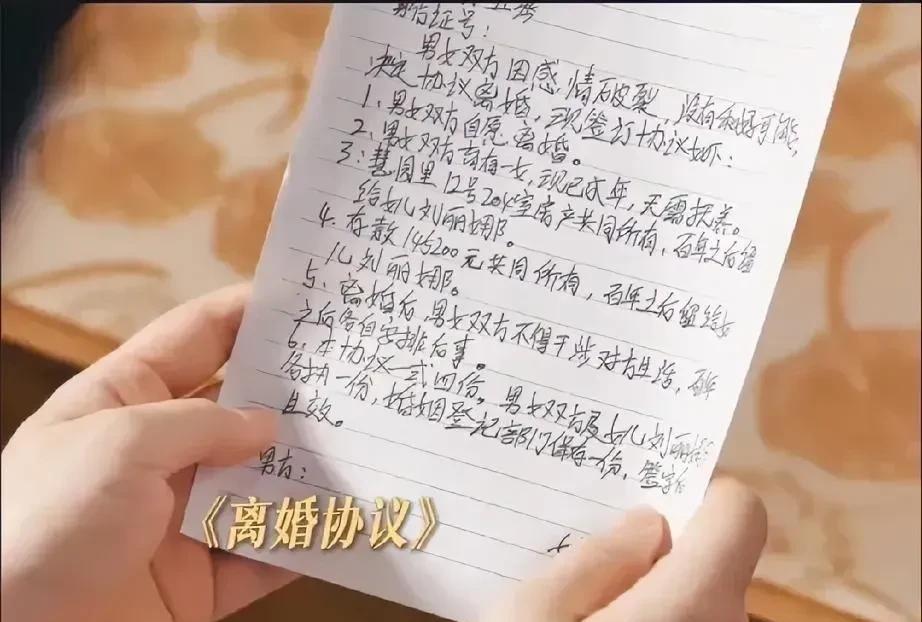 身份证号：
男女双方因感情破裂，没有和好可能，
决定协议离婚，现签订协议如下：
1、男女双方自愿离婚。
2、男女双方育有一女，现已成年，无需抚养。
3、慧园里12号204室房产共同所有，百年之后留
给女儿刘丽娜。
4、存款145200元共同所有，百年之后留给女
儿刘丽娜。
5、离婚后，男女双方不得干涉对方生活，百年
之后各自安排后事。
6、本协议一式四份，男女双方及女儿刘丽娜
各执一份，婚姻登记部门保存一份，签字后
生效。
男方：
《离婚协议》